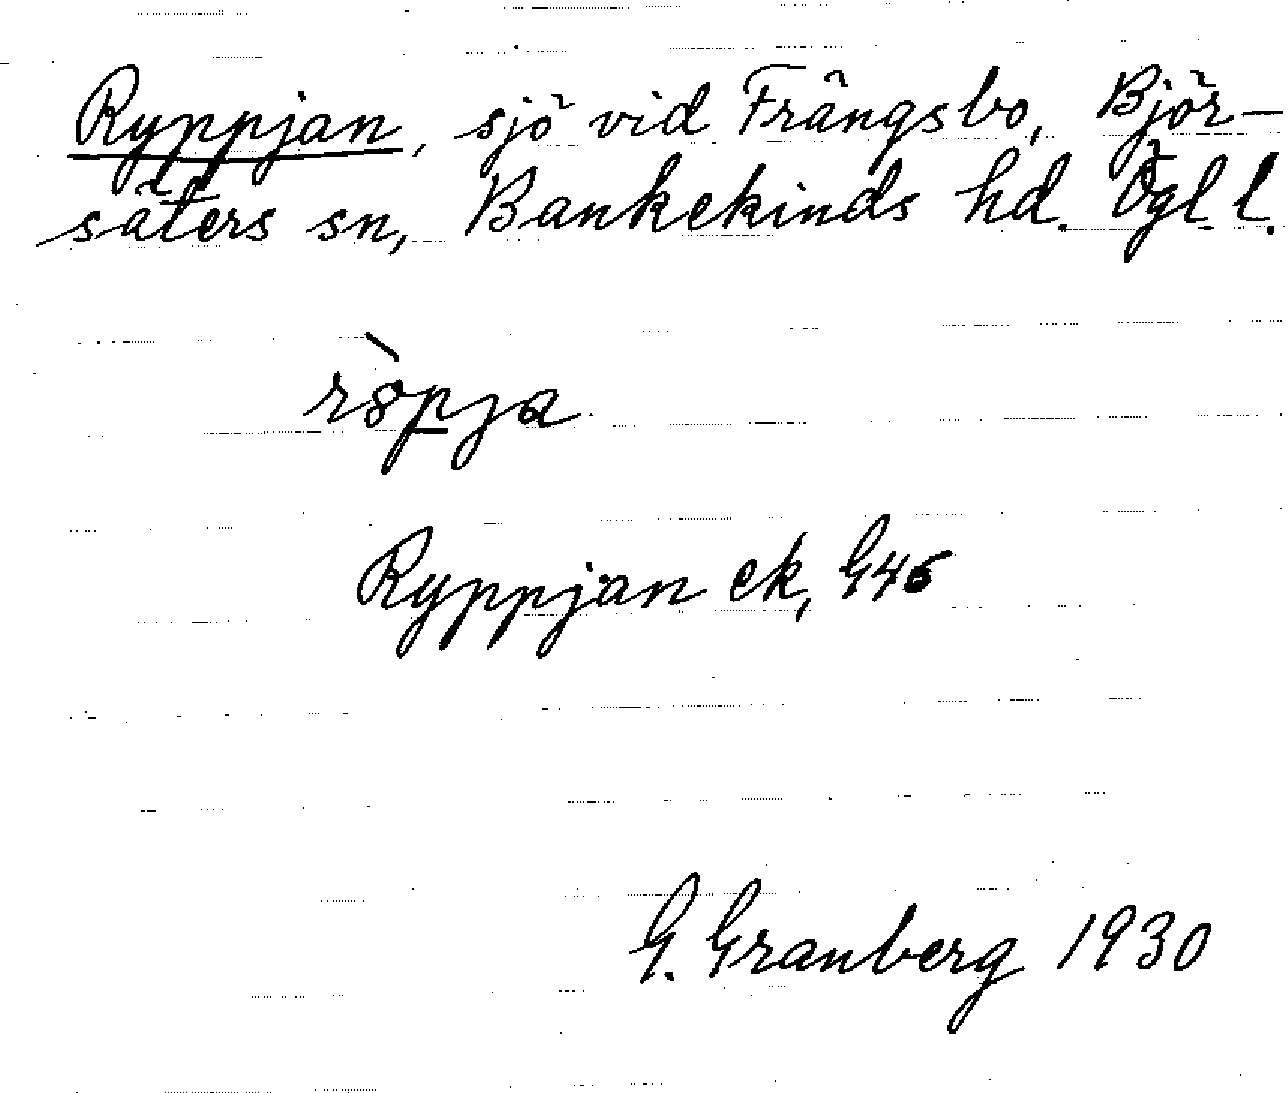 Ryppjan, sjö vid Frängsbo, Björ-
säters sn, Bankekinds hd. Ögl l.
rö̀pja
Ryppjan ek, G46
G. Granberg 1930